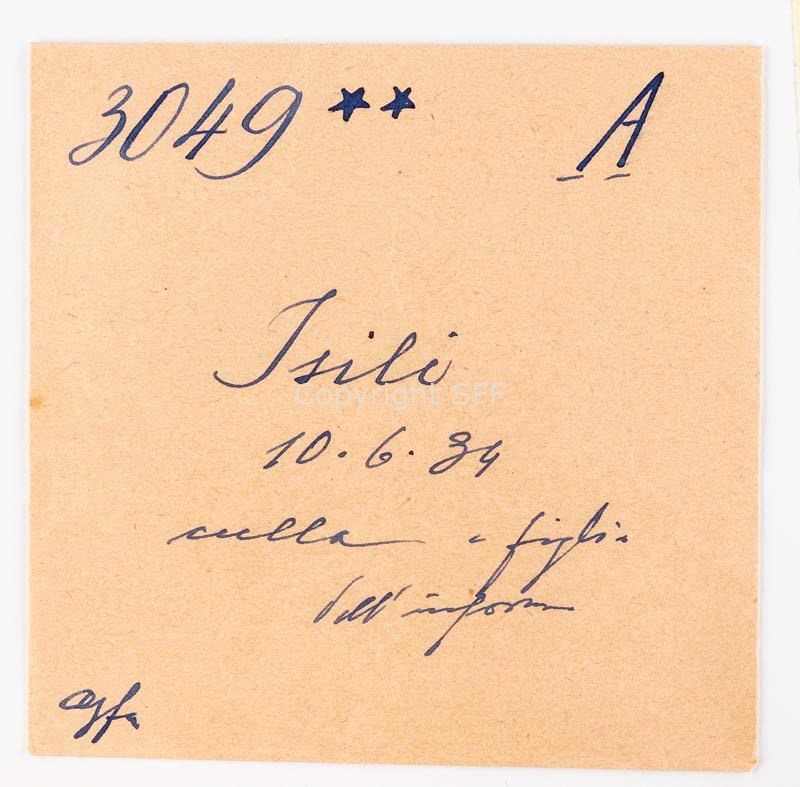 3049 ** A
Isili
Copyright SFF
10.6.34
culla e figlio
dell'inform
agfa